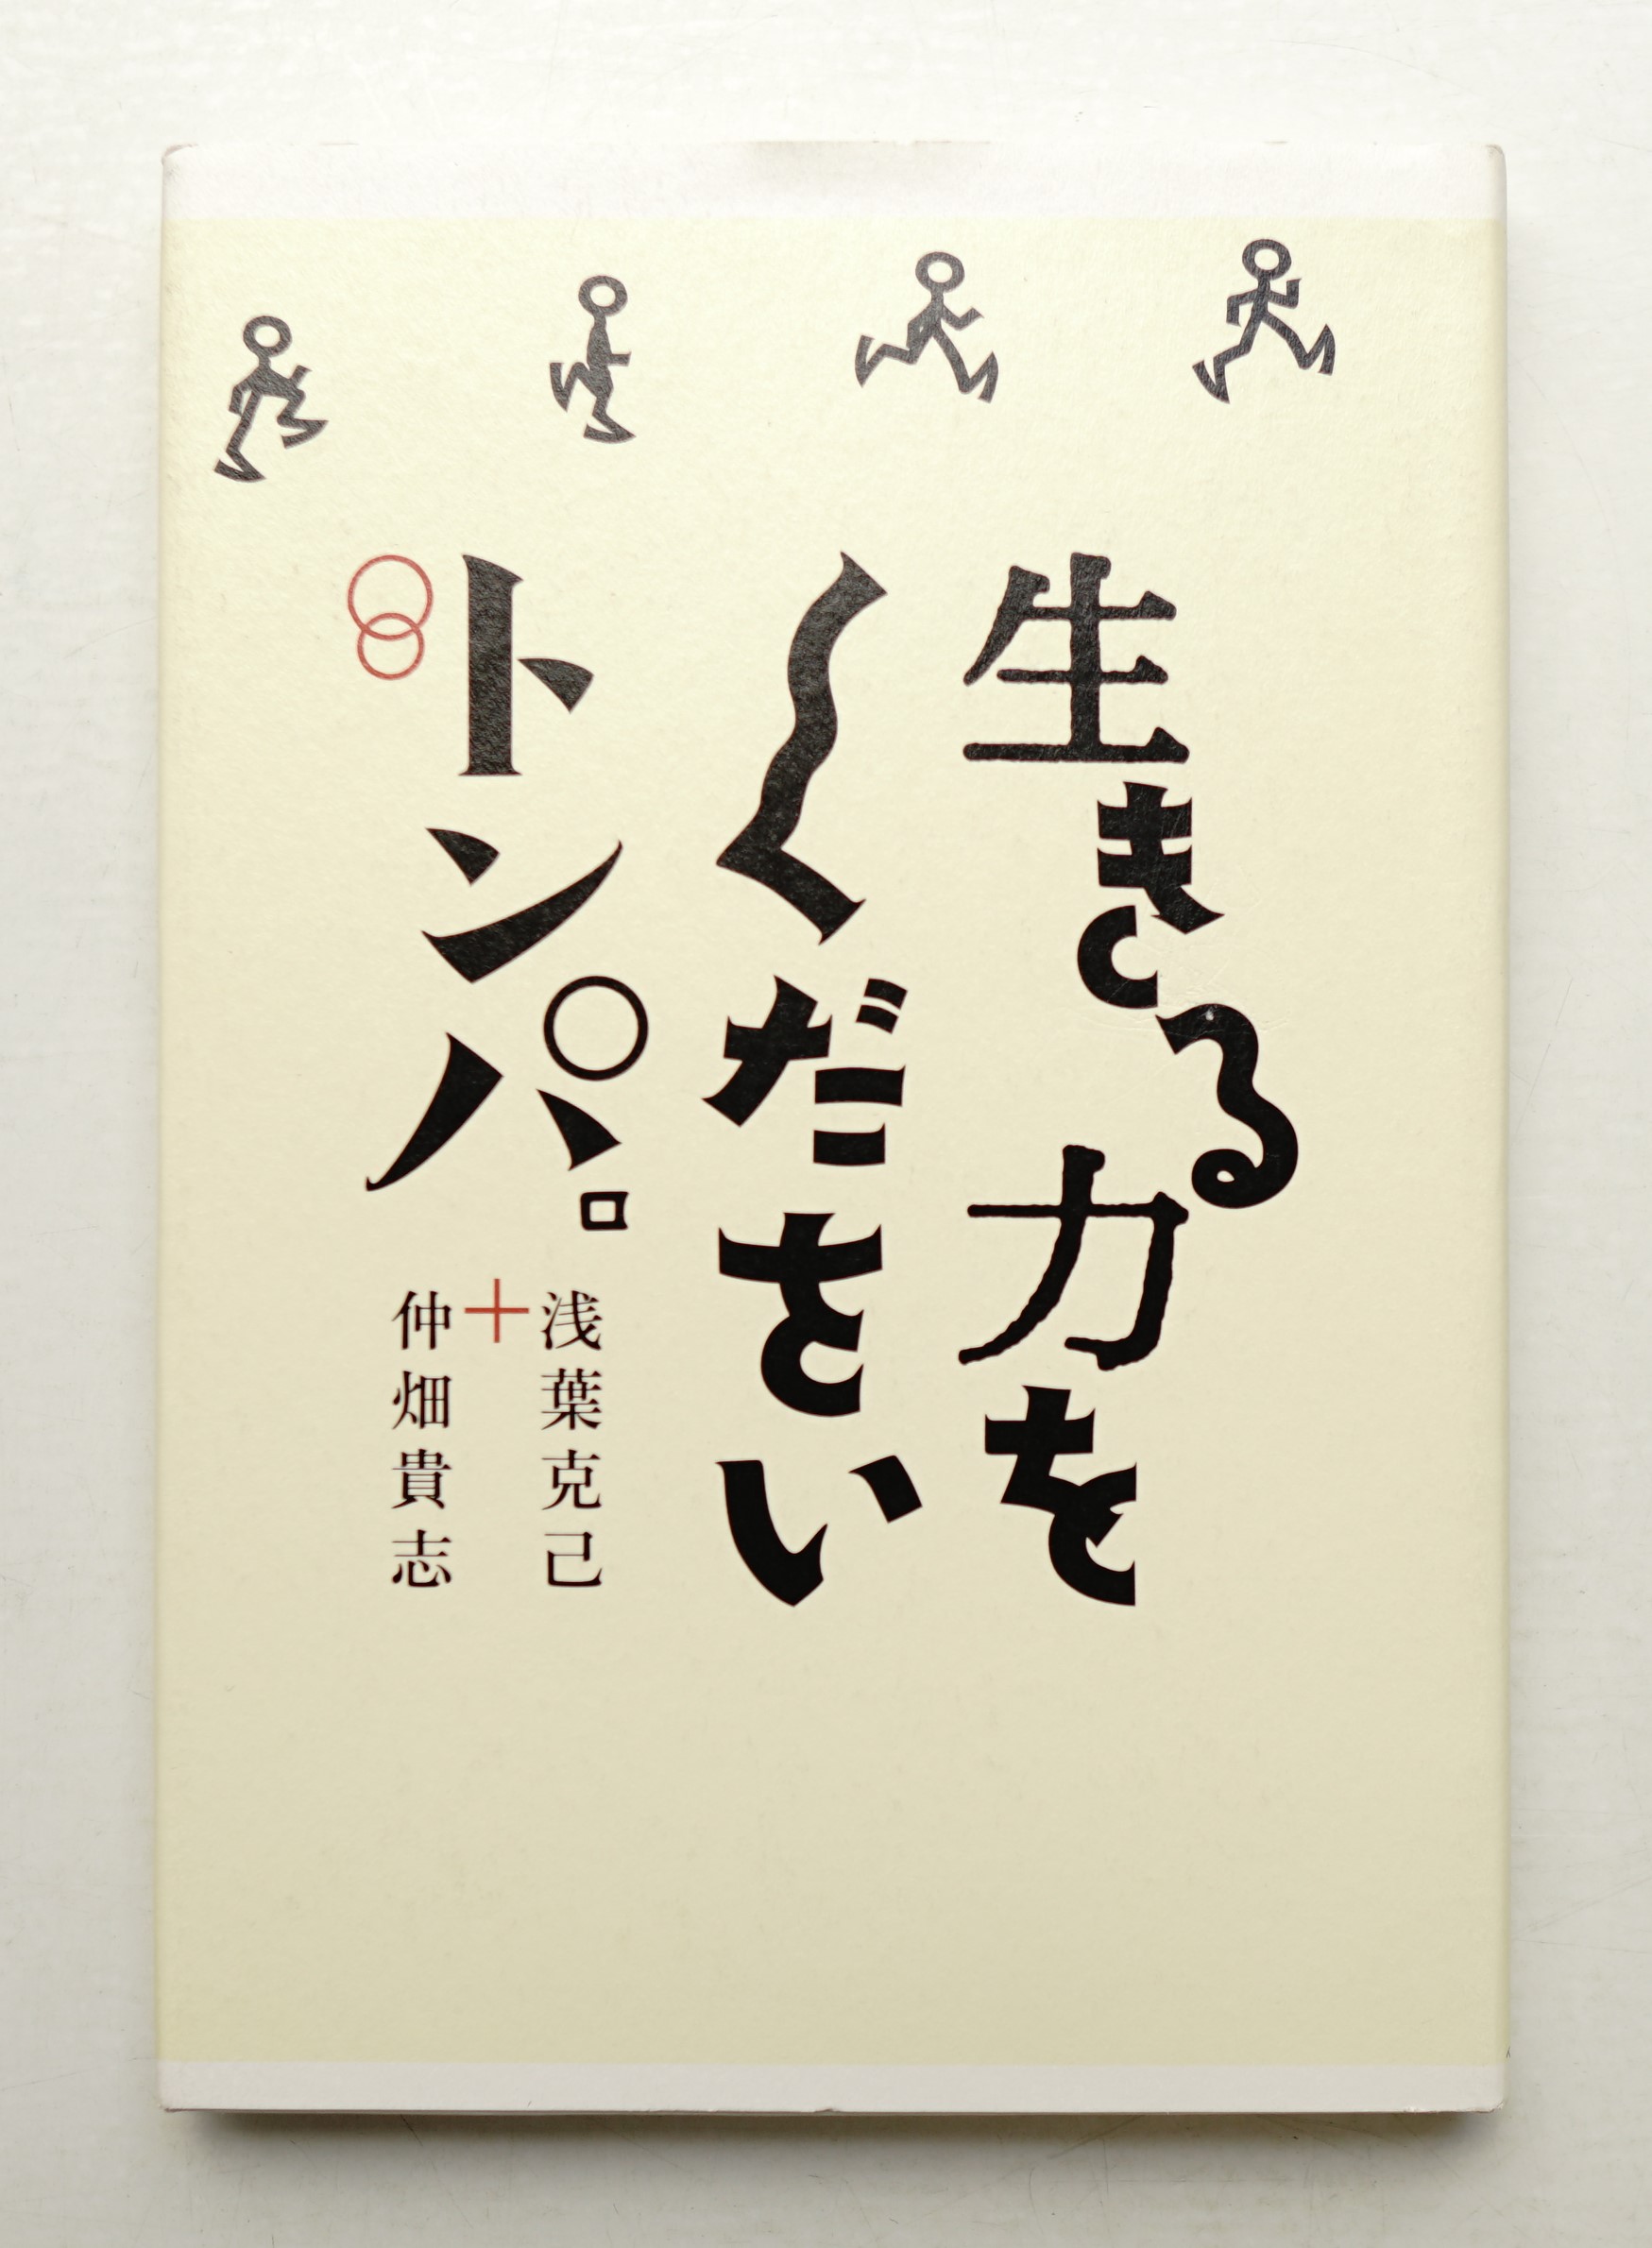 生きる力を
ください
トンパ。
浅葉克己
+
仲畑貴志